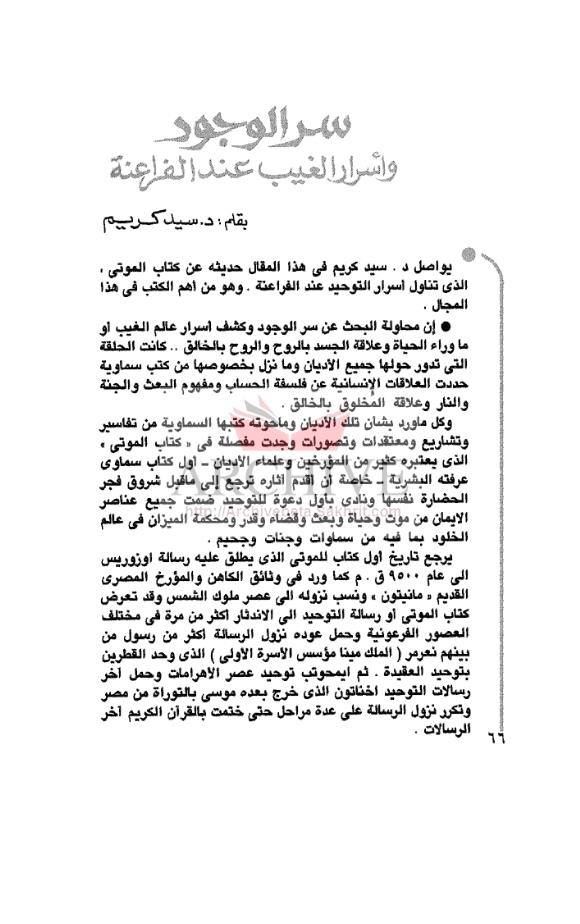 سر الوجود
وأسرار الغيب عند الفراعنة
بقلم : د. سيد كريم
يواصل د . سيد كريم فى هذا المقال حديثه عن كتاب الموتى ،
الذى تناول أسرار التوحيد عند الفراعنة . وهو من أهم الكتب فى هذا
المجال .
● إن محاولة البحث عن سر الوجود وكشف أسرار عالم الغيب أو
ما وراء الحياة وعلاقة الجسد بالروح والروح بالخالق .. كانت الحلقة
التى تدور حولها جميع الأديان وما نزل بخصوصها من كتب سماوية
حددت العلاقات الإنسانية عن فلسفة الحساب ومفهوم البعث والجنة
والنار وعلاقة المخلوق بالخالق .
وكل ماورد بشأن تلك الأديان وماحوته كتبها السماوية من تفاسير
وتشاريع ومعتقدات وتصورات وجدت مفصلة فى « كتاب الموتى »
الذى يعتبره كثير من المؤرخين وعلماء الأديان ـ أول كتاب سماوى
عرفته البشرية ـ خاصة أن أقدم آثاره ترجع إلى ماقبل شروق فجر
الحضارة نفسها ونادى بأول دعوة للتوحيد ضمت جميع عناصر
الايمان من موت وحياة وبعث وقضاء وقدر ومحكمة الميزان فى عالم
الخلود بما فيه من سماوات وجنات وجحيم .
يرجع تاريخ أول كتاب للموتى الذى يطلق عليه رسالة اوزوريس
الى عام ٩٥٠٠ ق . م كما ورد فى وثائق الكاهن والمؤرخ المصرى
القديم « مانيتون » ونسب نزوله الى عصر ملوك الشمس وقد تعرض
كتاب الموتى أو رسالة التوحيد الى الاندثار أكثر من مرة فى مختلف
العصور الفرعونية وحمل عوده نزول الرسالة أكثر من رسول من
بينهم نعرمر ( الملك مينا مؤسس الأسرة الأولى ) الذى وحد القطرين
بتوحيد العقيدة . ثم ايمحوتب توحيد عصر الاهرامات وحمل آخر
رسالات التوحيد اخناتون الذى خرج بعده موسى بالتوراة من مصر
وتكرر نزول الرسالة على عدة مراحل حتى ختمت بالقرآن الكريم آخر
الرسالات .
٦٦
ARCHIVE
http://Archivebeta.Sakhrit.com